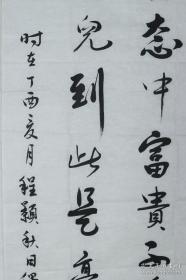 态中富貴不
兒到此是豪
时在丁酉夏月程颢秋日偶